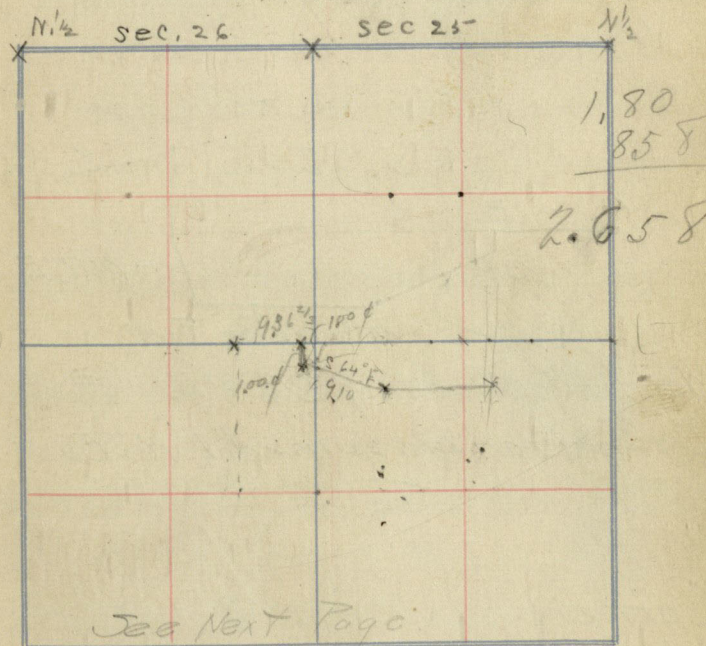 N.½ sec. 26 sec 25 N½
1,80
858
2.658
936 180 ¢
1,00.¢ S 64° E
910
See Next Page